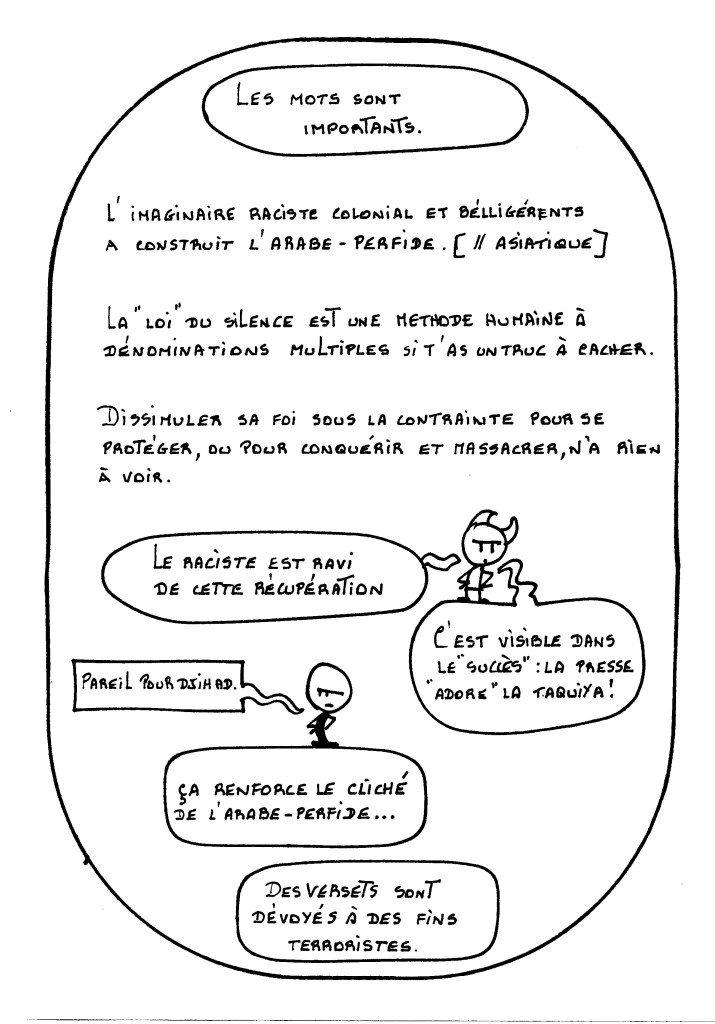 LES MOTS SONT
IMPORTANTS.
L'IMAGINAIRE RACISTE COLONIAL ET BÉLLIGÉRENTS
A CONSTRUIT L'ARABE-PERFIDE. [ // ASIATIQUE ]
LA "LOI" DU SILENCE EST UNE METHODE HUMAINE À
DÉNOMINATIONS MULTIPLES SI T'AS UN TRUC À CACHER.
DISSIMULER SA FOI SOUS LA CONTRAINTE POUR SE
PROTÉGER, OU POUR CONQUÉRIR ET MASSACRER, N'A RIEN
À VOIR.
LE RACISTE EST RAVI
DE CETTE RÉCUPÉRATION
C'EST VISIBLE DANS
LE "SUCCÈS" : LA PRESSE
"ADORE" LA TAQUIYA !
PAREIL POUR DJIHAD.
ÇA RENFORCE LE CLICHÉ
DE L'ARABE-PERFIDE...
DES VERSETS SONT
DÉVOYÉS À DES FINS
TERRORISTES.